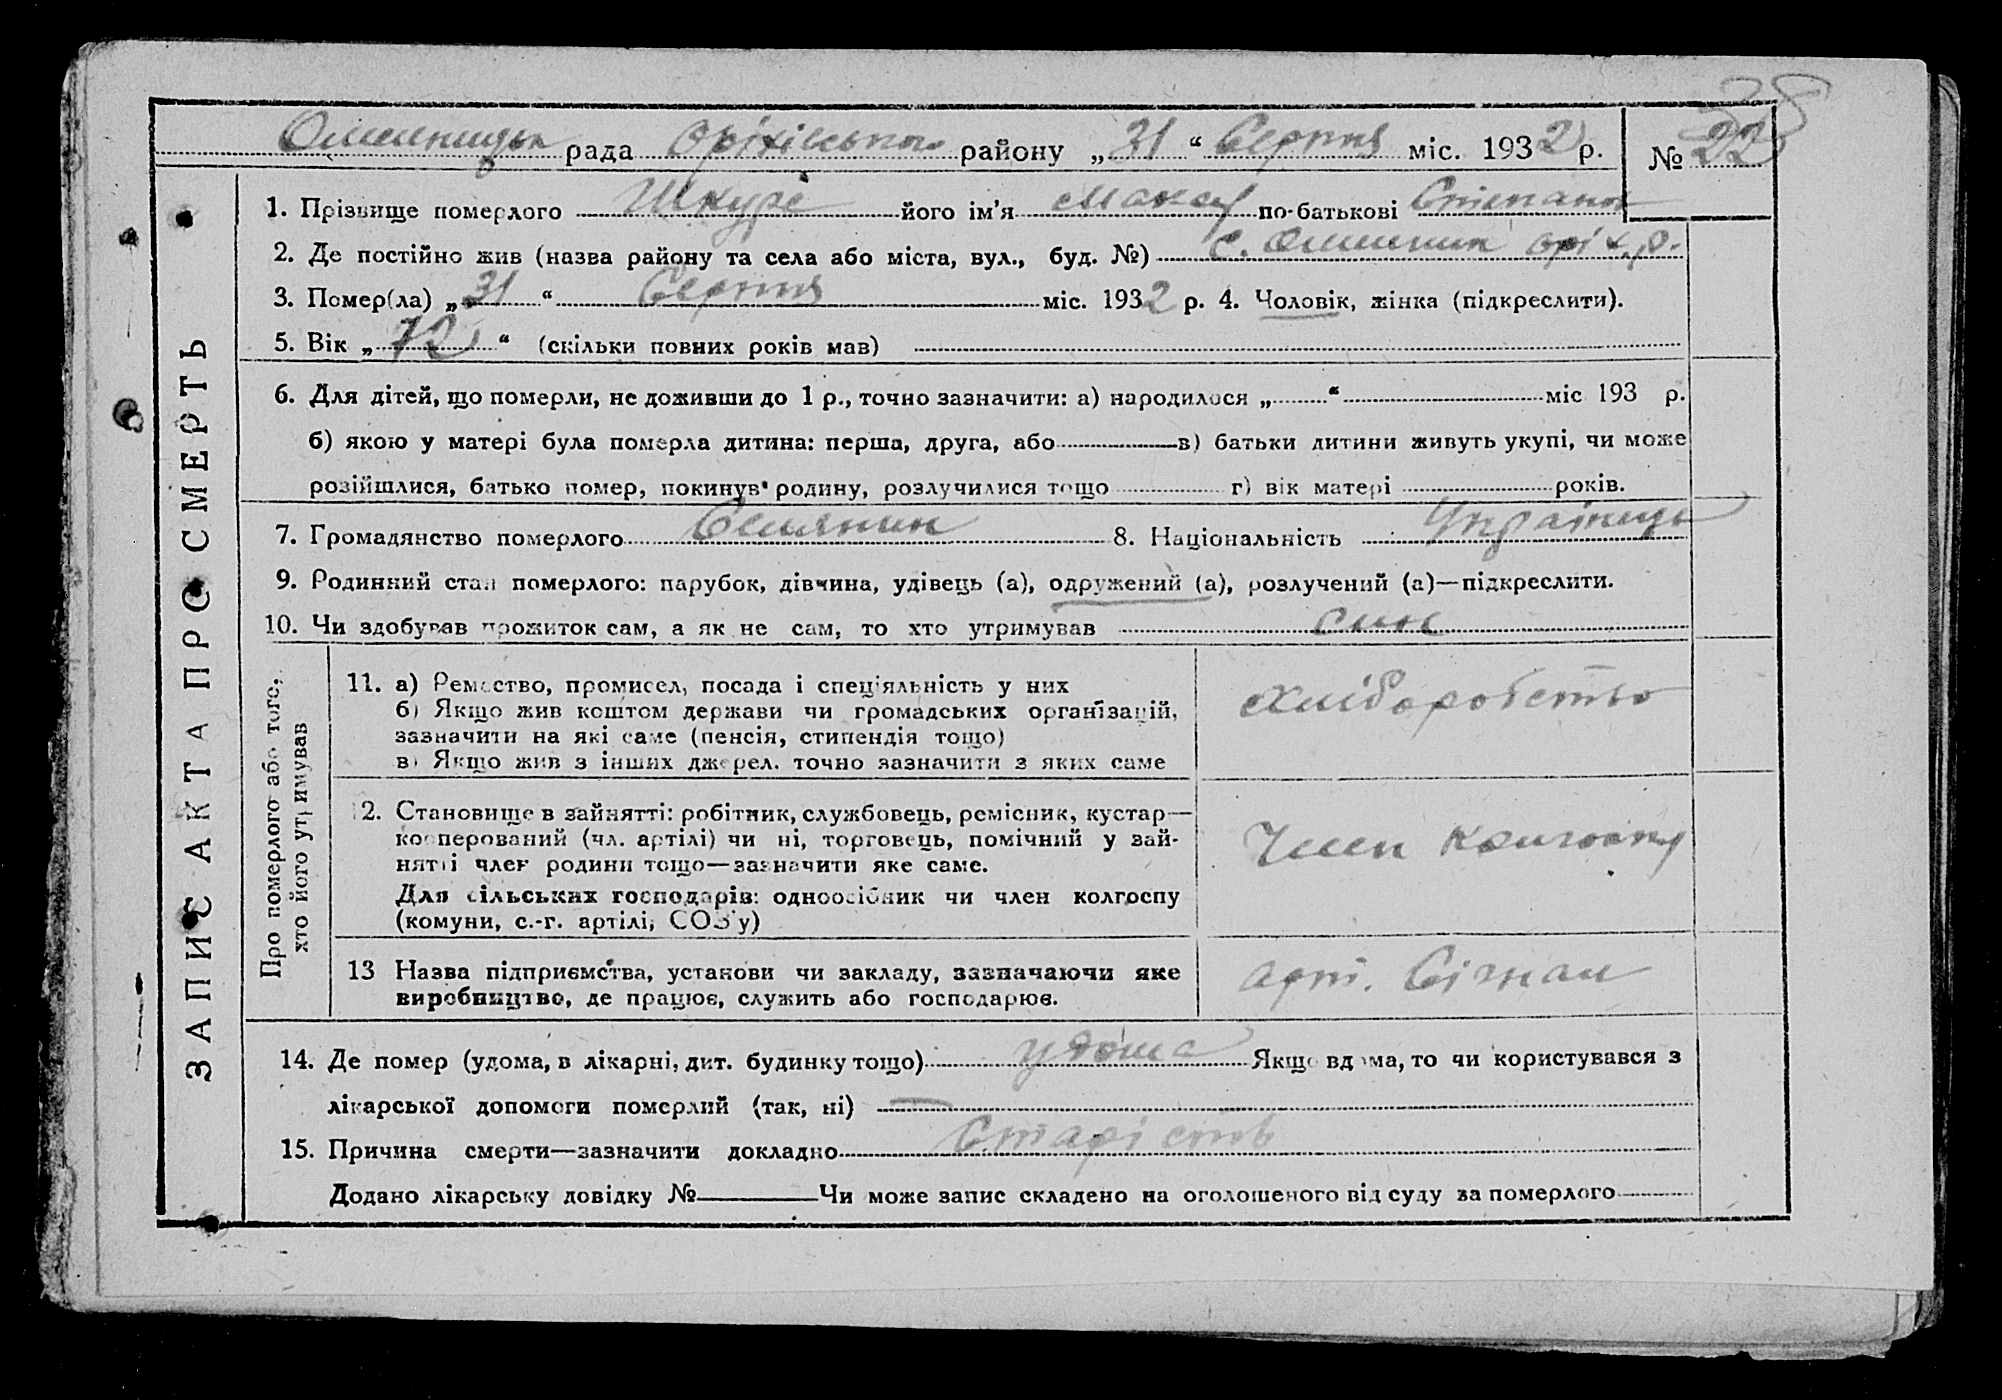 38
Омельницька рада Оріхівського району „31“ Серпня міс. 1932 р. № 22
1. Прізвище померлого Шкура його ім'я по-батькові Степанов
2. Де постійно жив (назва району та села або міста, вул., буд. №) с. Омельник оріх. р.
3. Помер(ла) „31“ Серпня міс. 1932 р. 4. Чоловік, жінка (підкреслити).
5. Вік „72“ (скільки повних років мав)
6. Для дітей, що померли, не доживши до 1 р., точно зазначити: а) народилося „ “ міс 193 р.
б) якою у матері була померла дитина: перша, друга, або в) батьки дитини живуть укупі, чи може
розійшлися, батько помер, покинув родину, розлучилися тощо г) вік матері років.
7. Громадянство померлого Селянин 8. Національність Українець
9. Родинний стан померлого: парубок, дівчина, удівець (а), одружений (а), розлучений (а)—підкреслити.
10. Чи здобував прожиток сам, а як не сам, то хто утримував син
ЗАПИС АКТА ПРО СМЕРТЬ
Про померлого або того,
хто його утримував
11. а) Ремество, промисел, посада і спеціяльність у них
б) Якщо жив коштом держави чи громадських організацій,
зазначити на які саме (пенсія, стипендія тощо)
в) Якщо жив з інших джерел, точно зазначити з яких саме
Хліборобство
12. Становище в зайнятті: робітник, службовець, ремісник, кустар—
кооперований (чл. артілі) чи ні, торговець, помічний у зай-
нятті член родини тощо—зазначити яке саме.
Для сільських господарів: одноосібник чи член колгоспу
(комуни, с.-г. артілі, СОЗ'у)
Член колгоспу
13 Назва підприємства, установи чи закладу, зазначаючи яке
виробництво, де працює, служить або господарює.
арт. Сігнал
14. Де помер (удома, в лікарні, дит. будинку тощо) удома Якщо вдома, то чи користувався з
лікарської допомоги померлий (так, ні) —
15. Причина смерти—зазначити докладно Старість
Додано лікарську довідку № Чи може запис складено на оголошеного від суду за померлого